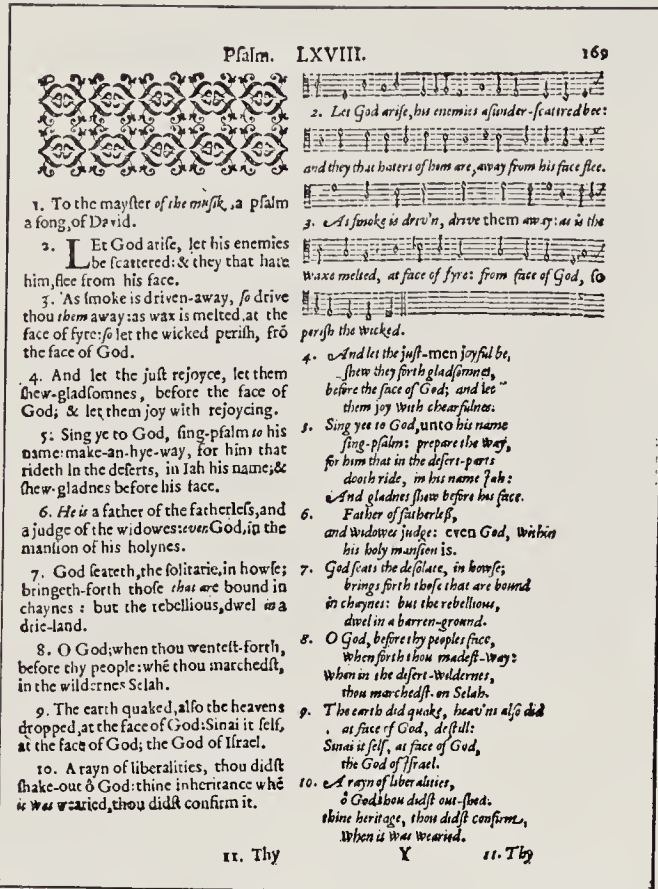 Pſalm. LXVIII. 169
1. To the mayſter of the muſik, a pſalm
a ſong, of David.
2. LEt God ariſe, let his enemies
be ſcattered: & they that hate
him, flee from his face.
3. As ſmoke is driven-away, ſo drive
thou them away: as wax is melted, at the
face of fyre: ſo let the wicked periſh, frō
the face of God.
4. And let the juſt rejoyce, let them
ſhew-gladſomnes, before the face of
God; & let them joy with rejoycing.
5. Sing ye to God, ſing-pſalm to his
name: make-an-hye-way, for him that
rideth in the deſerts, in Iah his name; &
ſhew-gladnes before his face.
6. He is a father of the fatherleſs, and
a judge of the widowes: even God, in the
manſion of his holynes.
7. God ſeateth, the ſolitarie, in howſe;
bringeth-forth thoſe that are bound in
chaynes : but the rebellious, dwel in a
drie-land.
8. O God; when thou wenteſt-forth,
before thy people: whē thou marchedſt,
in the wildernes Selah.
9. The earth quaked, alſo the heavens
dropped, at the face of God: Sinai it ſelf,
at the face of God; the God of Iſrael.
10. A rayn of liberalities, thou didſt
ſhake-out ô God: thine inheritance whē
it was wearied, thou didſt confirm it.
11. Thy
2. Let God ariſe, his enemies aſunder-ſcattred bee:
and they that haters of him are, away from his face flee.
3. As ſmoke is driv'n, drive them away: as is the
waxe melted, at face of fyre: from face of God, ſo
periſh the wicked.
4. And let the juſt-men joyful be,
ſhew they forth gladſomnes,
before the face of God; and let
them joy with chearfulnes.
5. Sing yee to God, unto his name
ſing-pſalm: prepare the way,
for him that in the deſert-parts
dooth ride, in his name Jah:
And gladnes ſhew before his face.
6. Father of fatherleß,
and widowes judge: even God, within
his holy manſion is.
7. God ſeats the deſolate, in howſe;
brings forth thoſe that are bound
in chaynes: but the rebellious,
dwel in a barren-ground.
8. O God, before thy peoples face,
when forth thou madeſt-way:
when in the deſert-wildernes,
thou marchedſt-on Selah.
9. The earth did quake, heav'ns alſo did
at face of God, deſtill:
Sinai it ſelf, at face of God,
the God of Iſrael.
10. A rayn of liberalities,
ô God thou didſt out-ſhed:
thine heritage, thou didſt confirm,
when it was wearied.
Y 11. Thy